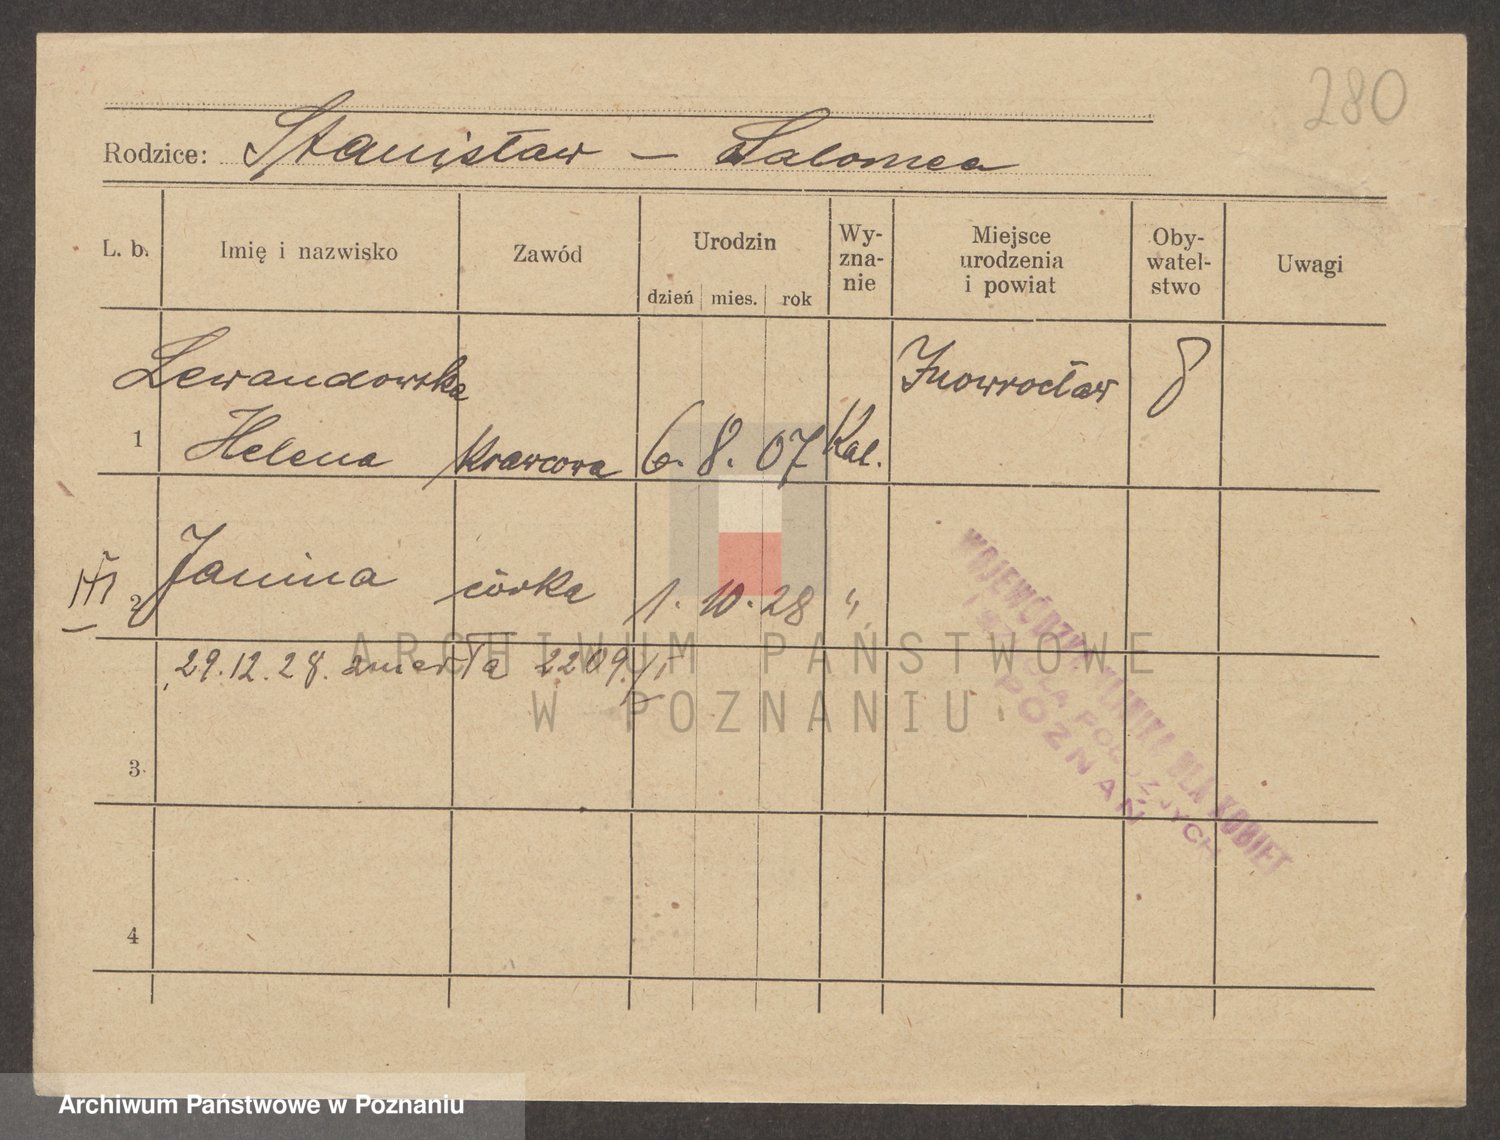 280
Rodzice: Stanisław – Salomea
L. b. Imię i nazwisko Zawód Urodzin dzień mies. rok Wy-zna-nie Miejsce urodzenia i powiat Oby-watel-stwo Uwagi
Lewandowska Inowrocław
1 Helena krawcowa 6. 8. 07 Kat.
2 Janina córka 1. 10. 28 "
29.12.28. zmarła 2209
3
4
WOJEWÓDZKA KLINIKA DLA KOBIET
POZNAŃ
ARCHIWUM PAŃSTWOWE
W POZNANIU
Archiwum Państwowe w Poznaniu